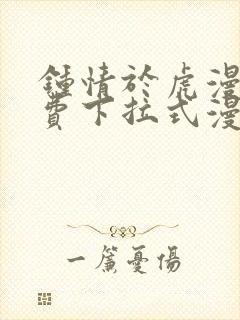 鍾情於虎漫
費下拉式漫
一簾憂傷